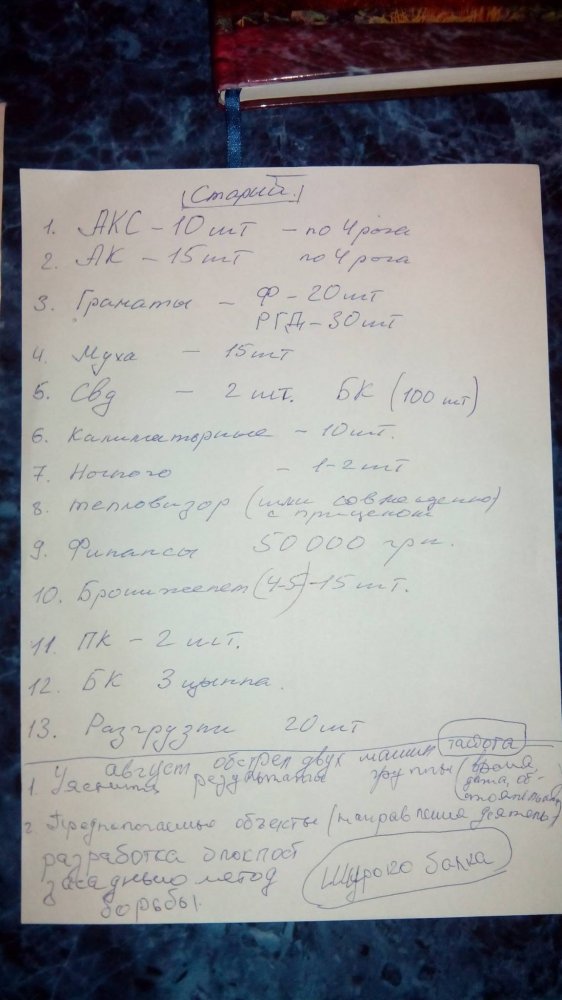 Старий
1. АКС - 10 шт - по 4 рога
2. АК - 15 шт по 4 рога
3. Гранаты - Ф - 20 шт
РГД - 30 шт
4. Муха - 15 шт
5. Свд - 2 шт. БК (100 шт)
6. Калиматорные - 10 шт.
7. Ночного - 1-2 шт
8. тепловизор (или совмещенно)
с прицелом
9. Финансы 50 000 грн.
10. Бронижелет (4-5) - 15 шт.
11. ПК - 2 шт.
12. БК 3 цынка.
13. Разгрузки 20 шт
август обстрел двух машин
1. Уяснить результаты группы (время,
дата, об-
стоятельства)
2. Предпологаемые объекты (направления деятель)
разработка блокпост
засадный метод
борьбы.
Широко балка